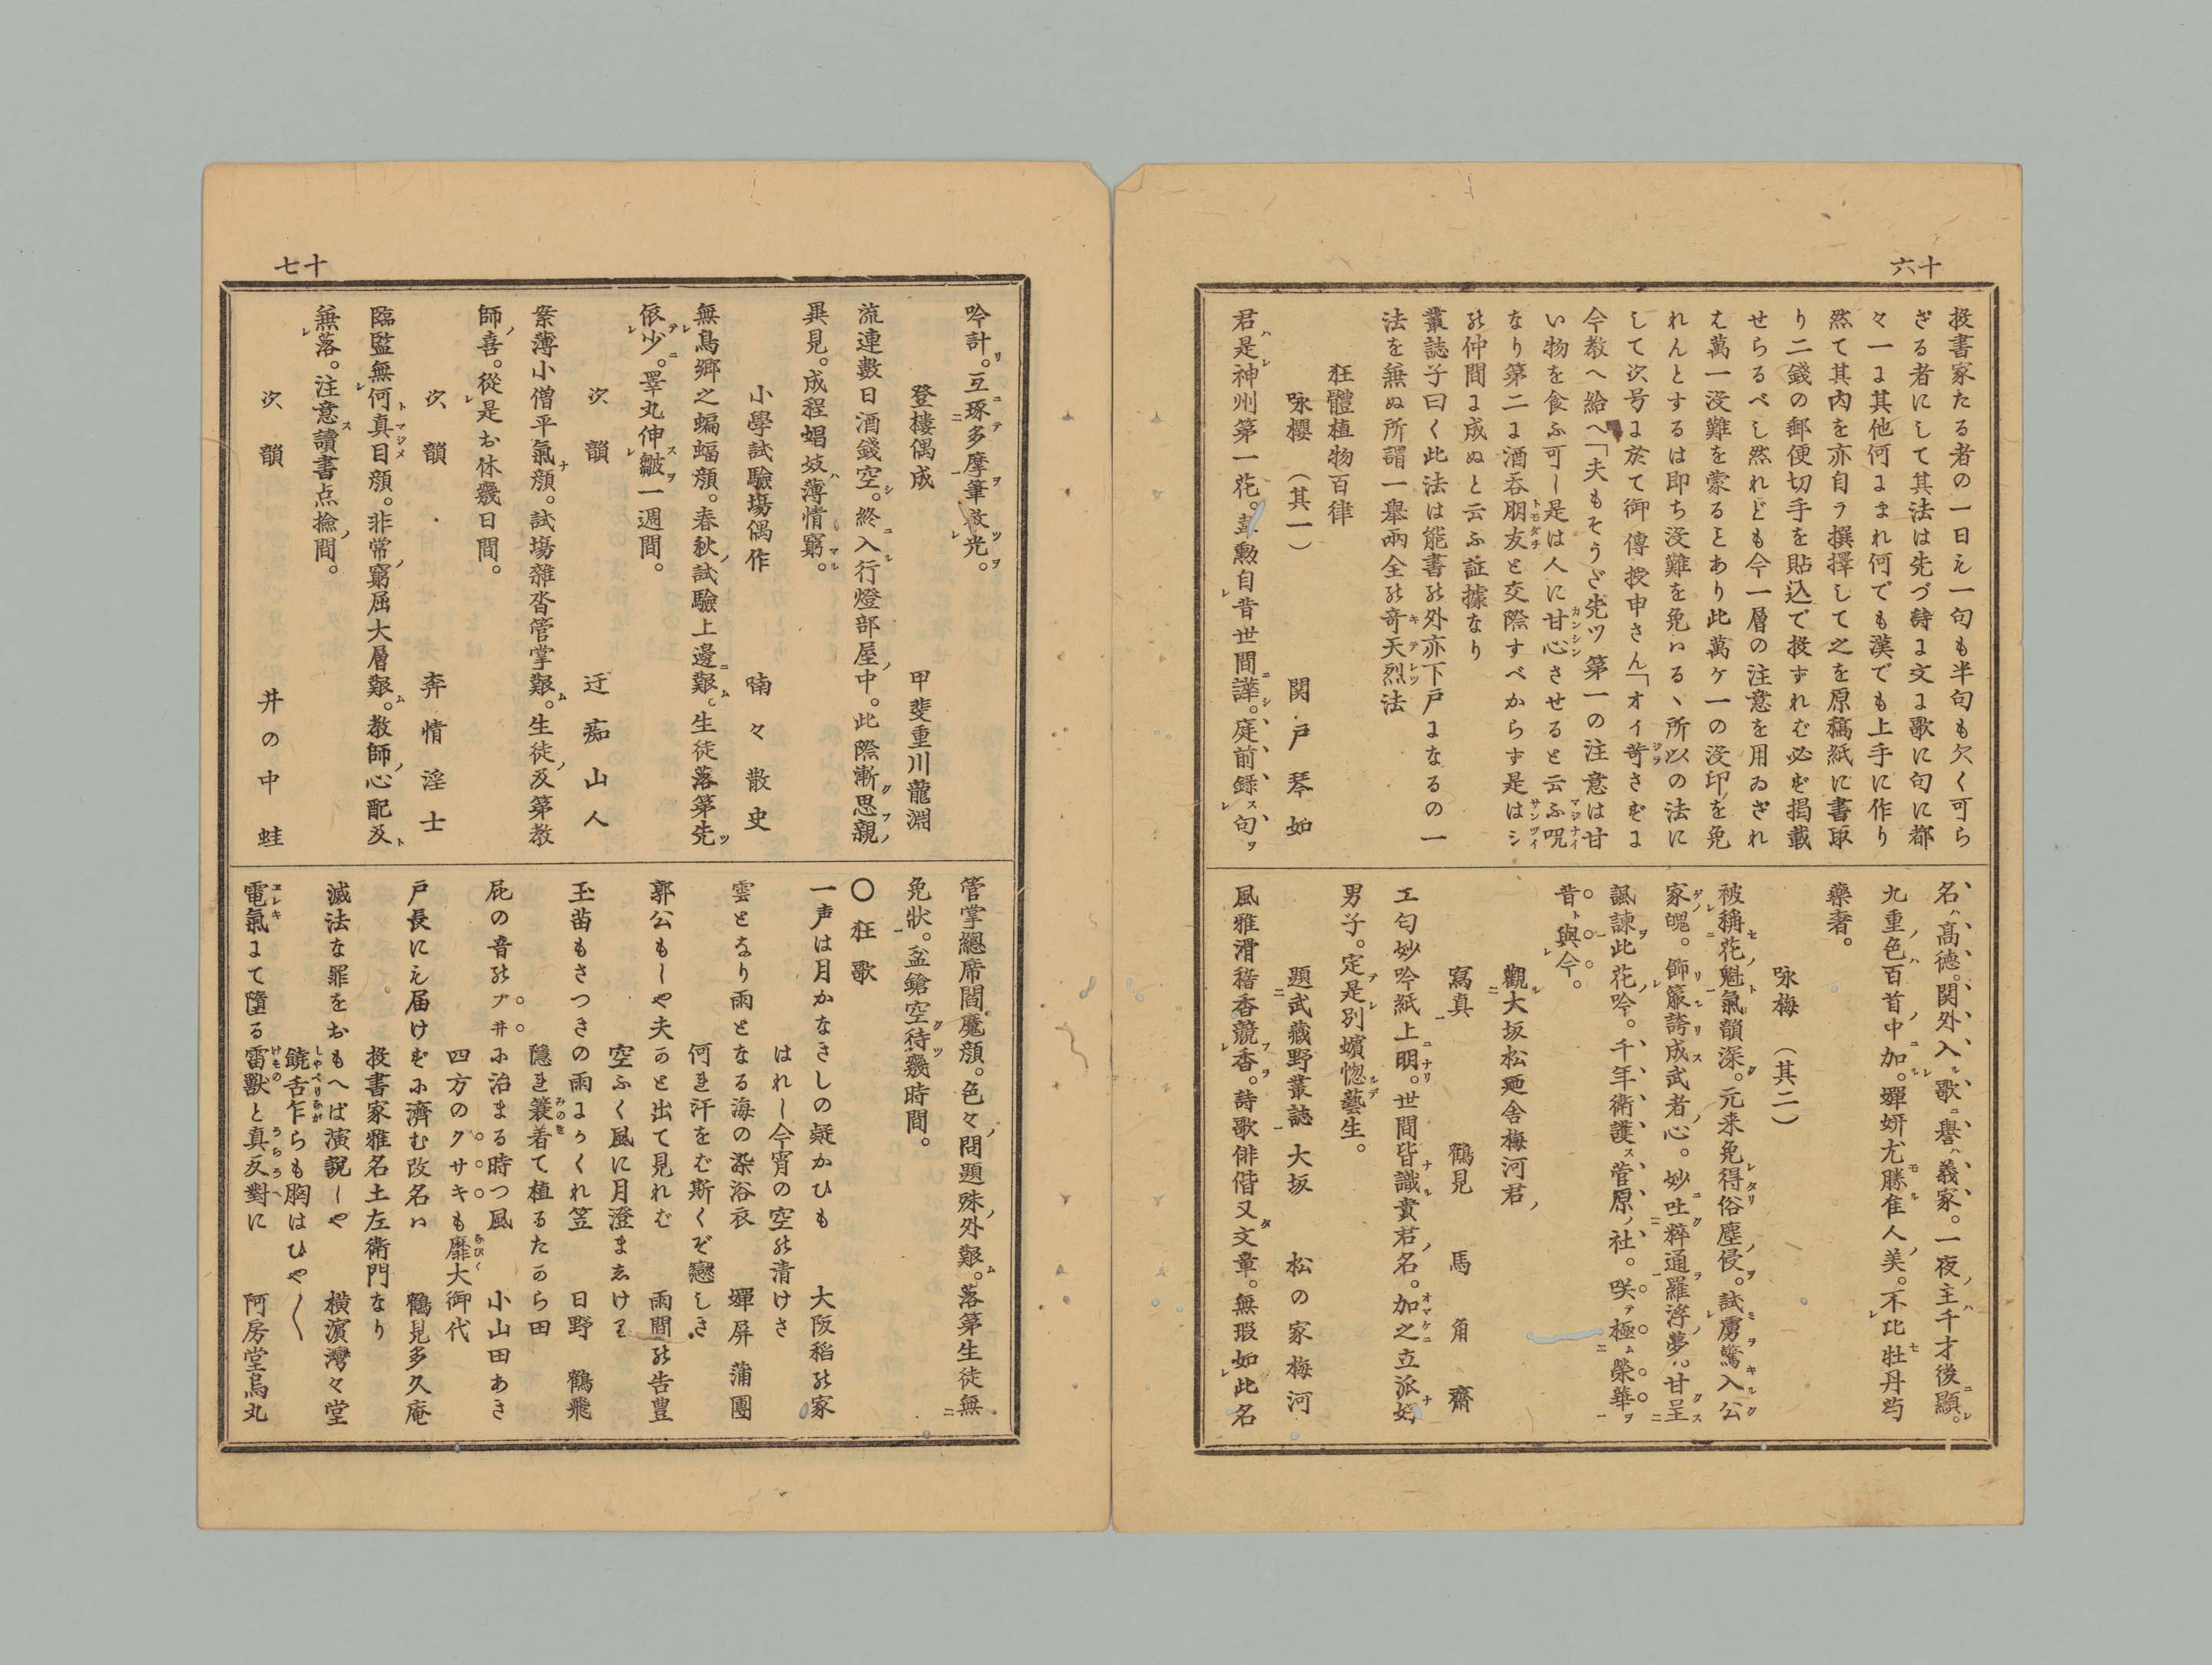 十六
投書家たる者の一日も一句も半句も欠く可ら
ざる者にして其法は先づ詩に文に歌に句に都
々一に其他何にまれ何でも漢でも上手に作り
然て其内を亦自ラ撰擇して之を原稿紙に書取
り二錢の郵便切手を貼込で投ずれば必ず掲載
せらるべし然れども今一層の注意を用ゐざれ
は萬一没難を蒙るヿあり此萬ケ一の没印を免
れんとするは即ち没難を免いるヽ所以の法に
して次号に於て御傳授申さん「オイ苛さずに
今教へ給へ「夫もそうだ先ツ第一の注意は甘
い物を食ふ可し是は人に甘心させると云ふ呪
なり第二に酒呑朋友と交際すべからず是はシ
の仲間に成ぬと云ふ証據なり
叢誌子曰く此法は能書の外亦下戸になるの一
法を無ぬ所謂一擧兩全の竒天烈法
狂體植物百律
咏櫻 (其一) 関戸琴如
君ハ是レ神州第一花。勲自レ昔世間ニ譁シ。庭前録スレ句ヲ
名ハ高德。関外入ルレ歌ニ譽ハ義家。一夜ノ主ハ千才後ニ顯レ。
九重ノ色ハ百首ノ中ニ加ル。嬋妍尤モ勝ル隹人ノ美。不レ比セ牡丹芍
藥奢。
咏梅 (其二)
被レ稱セ花ノ魁ト氣韻深ク。元来免レ得タリ俗塵ノ侵ヲ。試ミレ虜ヲ驚キ入ル公
家ノ魄。飾リレ箙ニ誇リ成ス武者ノ心。妙ニ吐ク粹通羅浮ノ夢ヲ。甘ク呈ス
諷諫ヲ此花ノ吟。千年衛護ス菅原ノ社。咲テ極ム榮華ヲ
昔ト與レ今。
觀ル大坂松廼舍梅河君ノ
寫真 鶴見 馬角齋
工匂妙吟紙上ニ明ナリ。世間皆識ル貴君ノ名。加之立派ナ好
男子。定テ是レ別嬪惚ルデ藝生。
題武藏野叢誌 大坂 松の家梅河
風雅滑稽香競フレ香ヲ。詩歌俳偕又タ文章。無瑕如レ此名
十七
吟計リ。互ニ琢テ多摩ヲ筆放ツレ光ヲ。
登樓偶成 甲斐重川龍淵
流連數日酒錢空シ。終ニ入ル行燈部屋ノ中。此際漸ク思フ親ノ
異見。成程娼妓ハ薄情ノ窮マル。
小學試驗塲偶作 喃々散史
無レ鳥郷之蝙蝠顔。春秋ノ試驗上邊ニ艱ム。生徒落第先ツ
依テレ少ニ。睪丸伸スレ皺ヲ一週間。
次韻 迂痴山人
案薄小僧平氣ナ顔。試塲雜沓管掌艱ム。生徒ノ及第教
師ノ喜。從レ是お休幾日間。
次韻 奔情淫士
臨監無レ何ト真目顔。非常ノ窮屈大層艱ム。教師ノ心配及ト
無レ落。注意ス讀書点撿ノ間。
次韻 井の中蛙
管掌總席閻魔顔。色々ノ問題殊ノ外艱ム。落第生徒無ニ
免狀一。盆鎗空ク待ツ幾時間。
○狂歌
一声は月かなきしの疑かひも
はれし今宵の空の清けさ 大阪稲の家
雲となり雨となる海の染浴衣
何ぞ汗をば斯くぞ戀しき 蟬屏蒲團
郭公もしや夫かと出て見れば
空ふく風に月澄ましけり 雨間の告豊
玉苗もさつきの雨にかくれ笠
隠れ簑着て植るたから田 日野 鶴飛
屁の音のブヰに治まる時つ風
四方のクサキも靡大御代 小山田あき
戸長にも届けずに濟む改名は
投書家雅名土左衛門なり 鶴見多久庵
滅法な罪をおもへば演説しや
饒舌乍らも胸はひや〳〵 横濵灣々堂
電氣にて墮る雷獸と真反對に 阿房堂烏丸